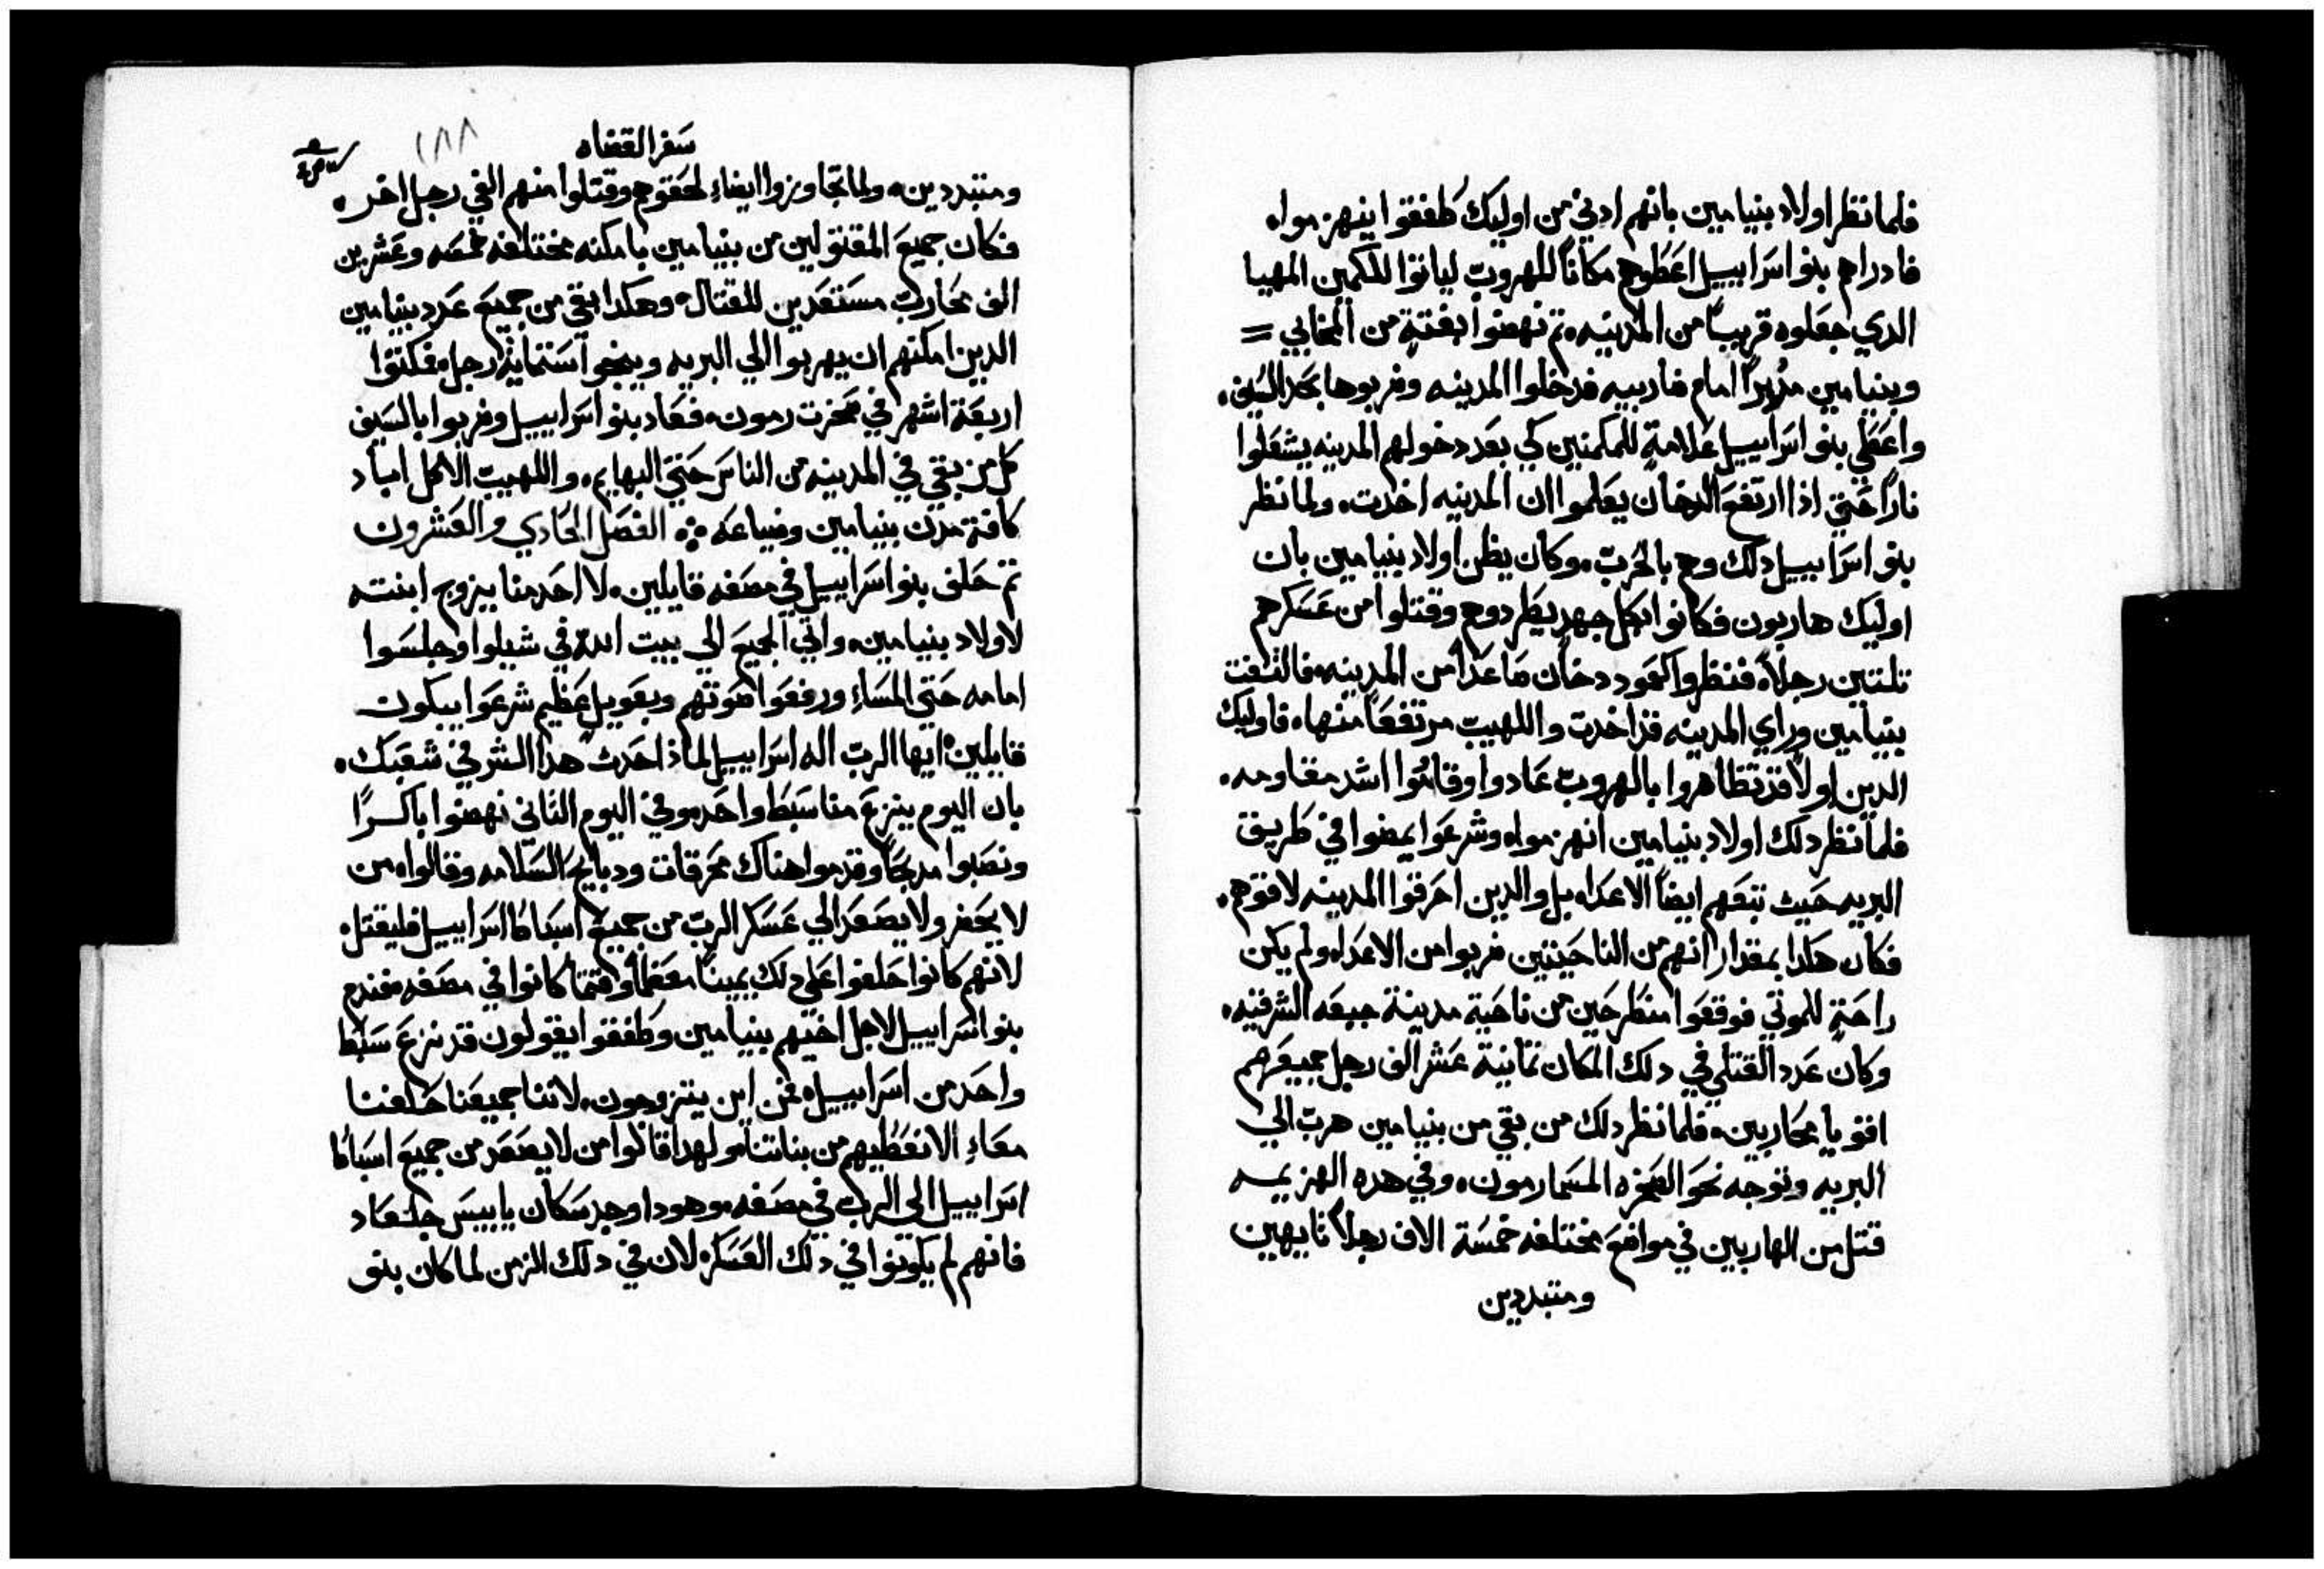 فلما نظر اولاد بنيامين بانهم ادني من اوليك طفقوا ينهزموا،
فادراهم بنوا اسراييل اعطوهم مكاناً للهروب لياتوا للكمين المهيا
الدي جعلوه قريباً من المدينه، تم نهضوا بغتةٍ من المخابي =
وبنيامين مدبراً امام ضاربيه فدخلوا المدينه وضربوها بحد السيف،
واعطي بنو اسراييل علامةٍ للمكمنين كي بعد دخولهم المدينه يشعلوا
ناراً حتي اذا ارتفع الدخان يعلموا ان المدينه اخدت، ولما نظر
بنو اسراييل دلك وهم بالحرب، وكان يظن اولاد بنيامين بان
اوليك هاربون فكانوا بكل جهدٍ يطردوهم وقتلوا من عسكرهم
تلتين رجلاً، فنظروا كعمود دخان صاعداً من المدينه، فالتفت
بنيامين وراي المدينه قد اخدت واللهيب مرتفعاً منها، فاوليك
الدين اولاً قد تظاهروا بالهروب عادوا وقاموا اشد مقاومه،
فلما نظر دلك اولاد بنيامين انهزموا، وشرعوا يمضوا في طريق
البريه حيث تبعهم ايضاً الاعداء، بل والدين احرقوا المدينه لاقوهم،
فكان هكدا بمقدار انهم من الناحيتين ضربوا من الاعداء، ولم يكن
راحةٍ للموتي فوقعوا منطرحين من ناحية مدينة جبعه الشرقيه،
وكان عدد القتلي في دلك المكان تمانية عشر الف رجل جميعهم
اقويا محاربين، فلما نظر دلك من بقي من بنيامين هرب الي
البريه وتوجه نحو الصخره المسما رمون، وفي هده الهزيمه
قتل من الهاربين في مواضع مختلفه خمسة الاف رجلاً تايهين
ومتبددين
سفر القضاه
١٨٨
ومتبددين، ولما تجاوزوا ايضاً، لحقوهم وقتلوا منهم الفي رجل اخر،
فكان جميع المقتولين من بنيامين بامكنه مختلفه خمسه وعشرين
الف محارب مستعدين للقتال، وهكدا بقي من جميع عدد بنيامين
الدين امكنهم ان يهربوا الي البريه وينجوا ستماية رجل، فمكتوا
اربعة اشهر في صخرت رمون، فعاد بنو اسراييل وضربوا بالسيف
كل من بقي في المدينه من الناس حتي البهايم، واللهيب الاكل اباد
كافة مدن بنيامين وضياعه ܀ الفصل الحادي والعشرون
تم حلف بنو اسراييل في مصفه قايلين، لا احد منا يزوج ابنته
لاولاد بنيامين، واتي الجميع الي بيت الله في شيلوا وجلسوا
امامه حتي المساء ورفعوا صوتهم وبعويل عظيم شرعوا يبكون
قايلين، ايها الرب اله اسراييل لماذ احدث هدا الشر في شعبك،
بان اليوم ينزع منا سبط واحد، وفي اليوم التاني نهضوا باكراً
ونصبوا مدبحاً وقدموا هناك محرقات ودبايح السلامه وقالوا، من
لا يحضر ولا يصعد الي عسكر الرب من جميع اسباط اسراييل فليقتل،
لانهم كانوا حلفوا علي دلك يميناً معظماً وقتما كانوا في مصفه، فندم
بنو اسراييل لاجل اخيهم بنيامين وطفقوا يقولون قد نزع سبط
واحد من اسراييل، فمن اين يتزوجون، لاننا جميعنا حلفنا
معاءٍ الا نعطيهم من بناتنا، ولهدا قالوا من لا يصعد من جميع اسباط
اسراييل الي الرب في مصفه، وهودا وجد سكان يابيس جلعاد
فانهم لم يكونوا في دلك العسكر، لان في دلك الزمن لما كان بنو